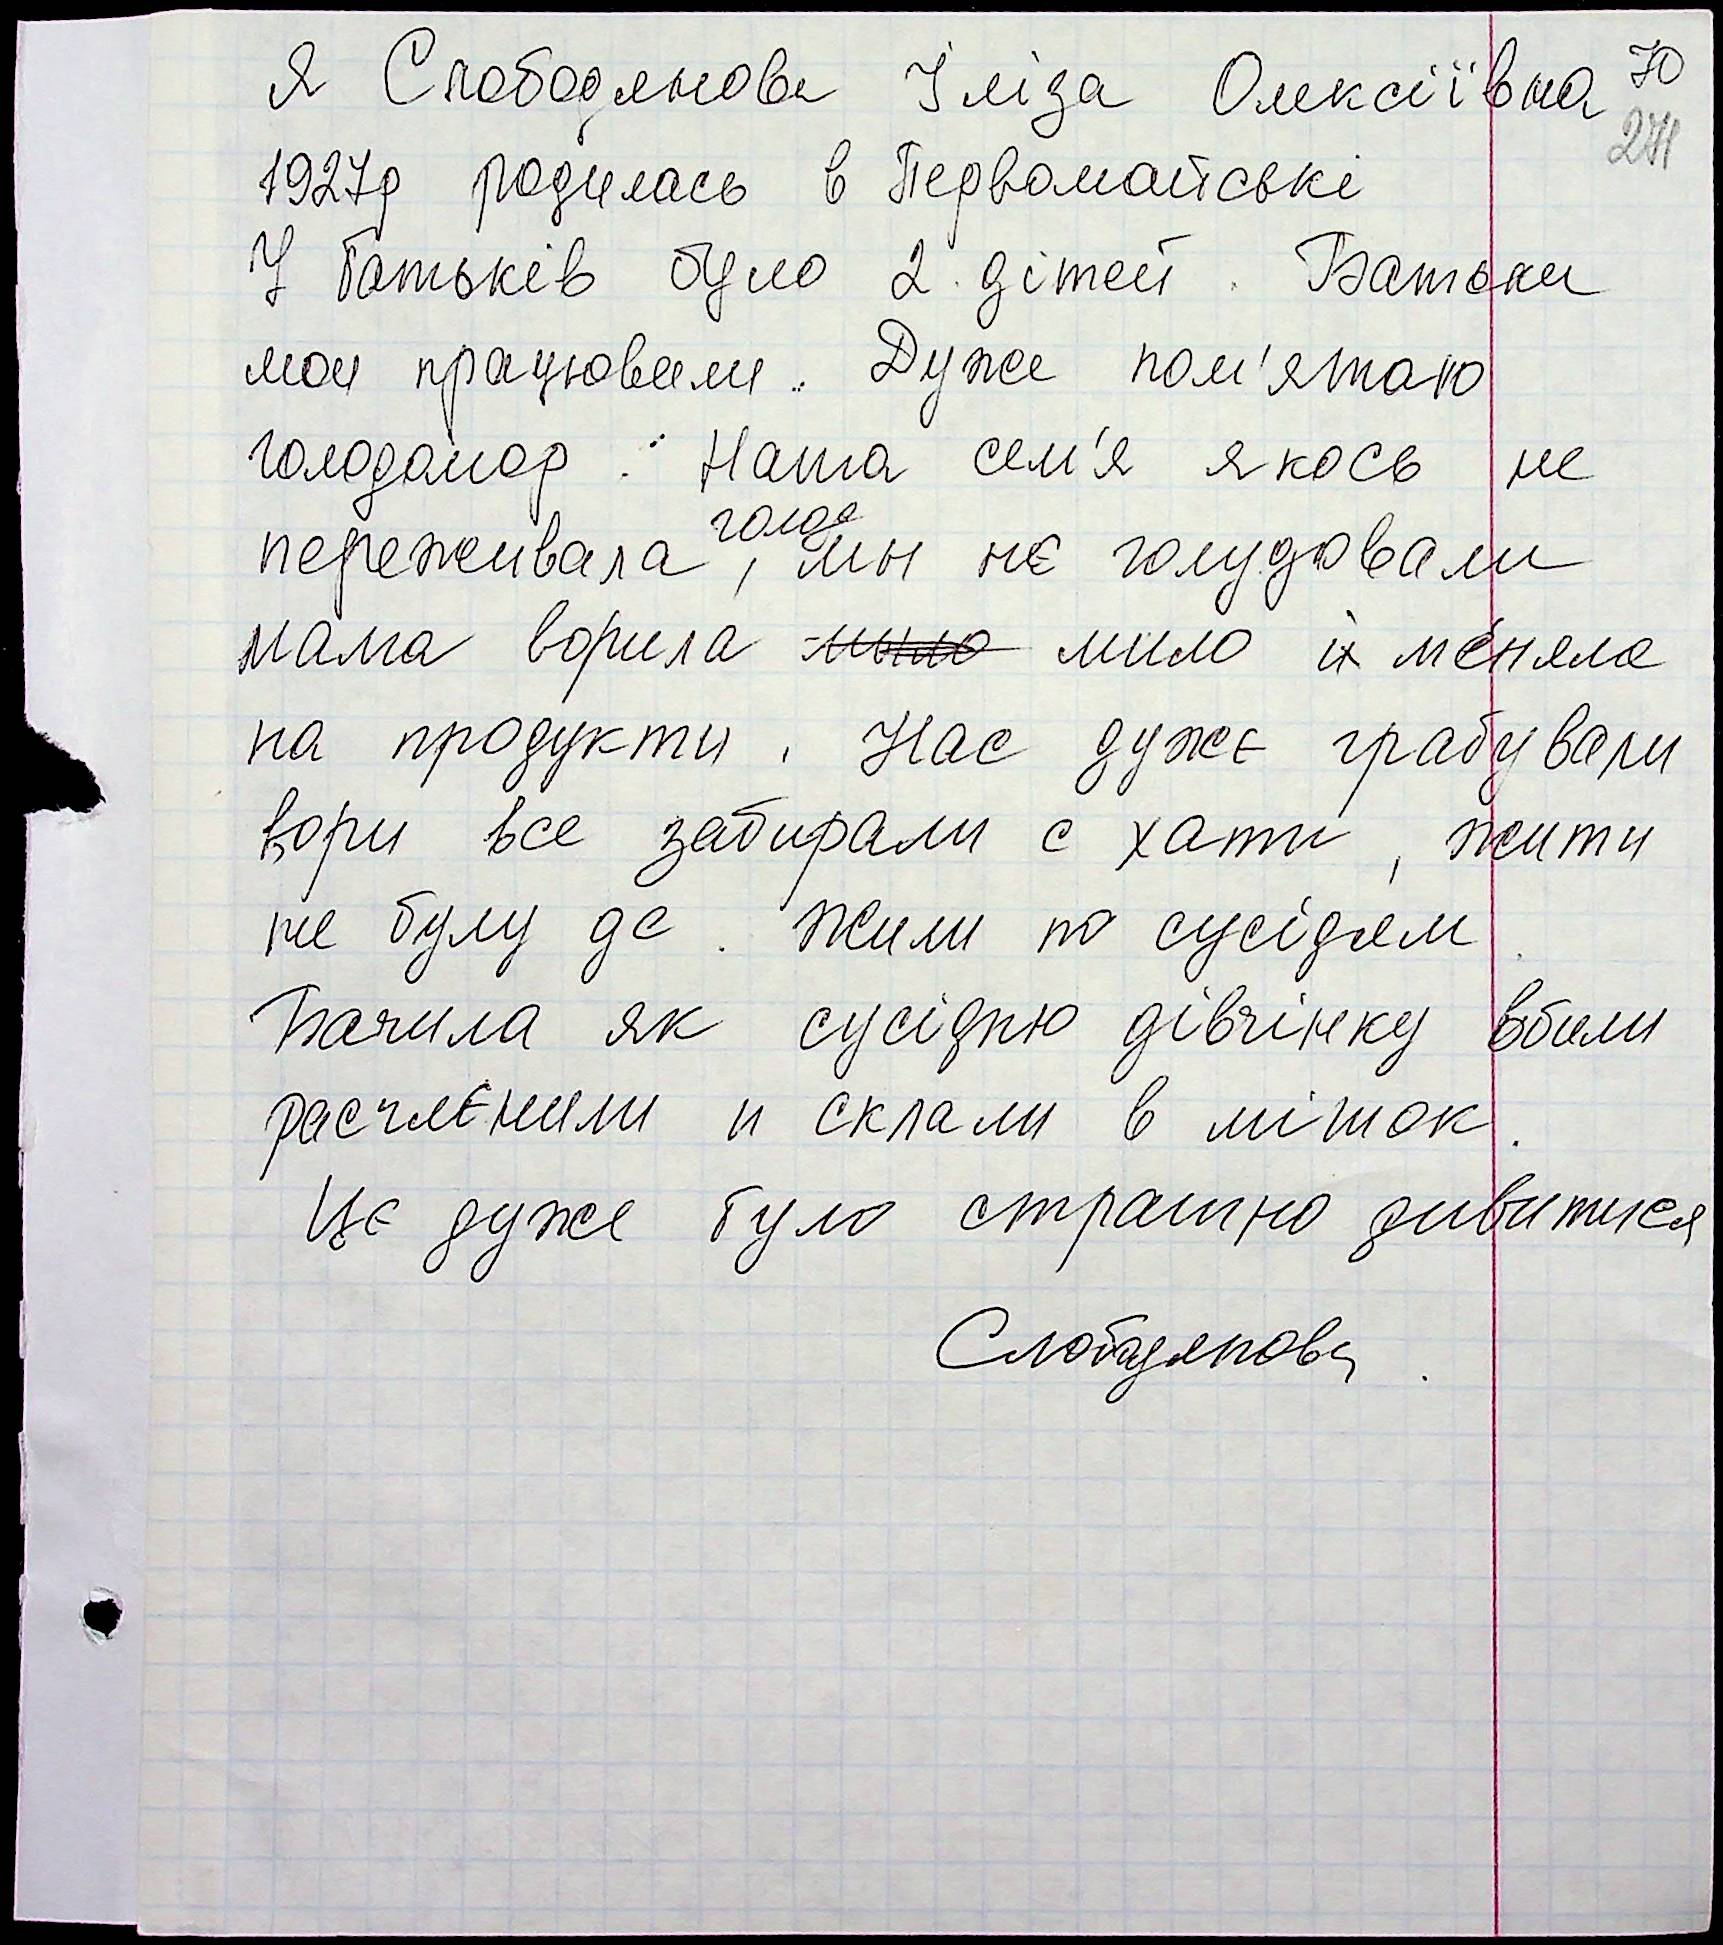 Я Слободянова Іліза Олексіївна 70
271
1927р родилась в Первомайські
У батьків було 2 дітей. Батьки
мои працювали. Дуже пом'ятаю
голодомор. Наша сем'я якось не
голода
переживала, мы нє голудовали
мама ворила мыло мило їх меняла
на продукти. Нас дужє грабували
вори все забирали с хати, жити
не булу де. Жили по сусідям.
Бачила як сусідню дівчінку вбили
расчлєнили и склали в мішок.
Це дуже було страшно дивитися
Слободянова.